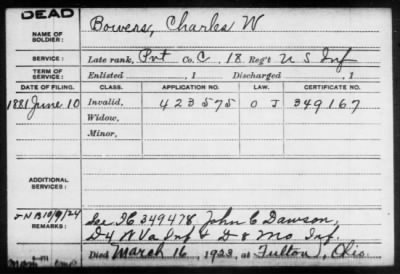 DEAD
NAME OF SOLDIER: Bowers, Charles W
SERVICE: Late rank, Pvt Co. C, 18 Reg't U S Inf
TERM OF SERVICE: Enlisted , 1 Discharged , 1
DATE OF FILING. CLASS. APPLICATION NO. LAW. CERTIFICATE NO.
1881 June 10 Invalid, 423575 O J 349167
Widow,
Minor,
ADDITIONAL SERVICES:
JNB 10/9/24 See IC 349478, John C Dawson,
REMARKS: D 4 W Va Inf & D 8 Mo Inf.
Died March 16, 1923, at Fulton, Ohio